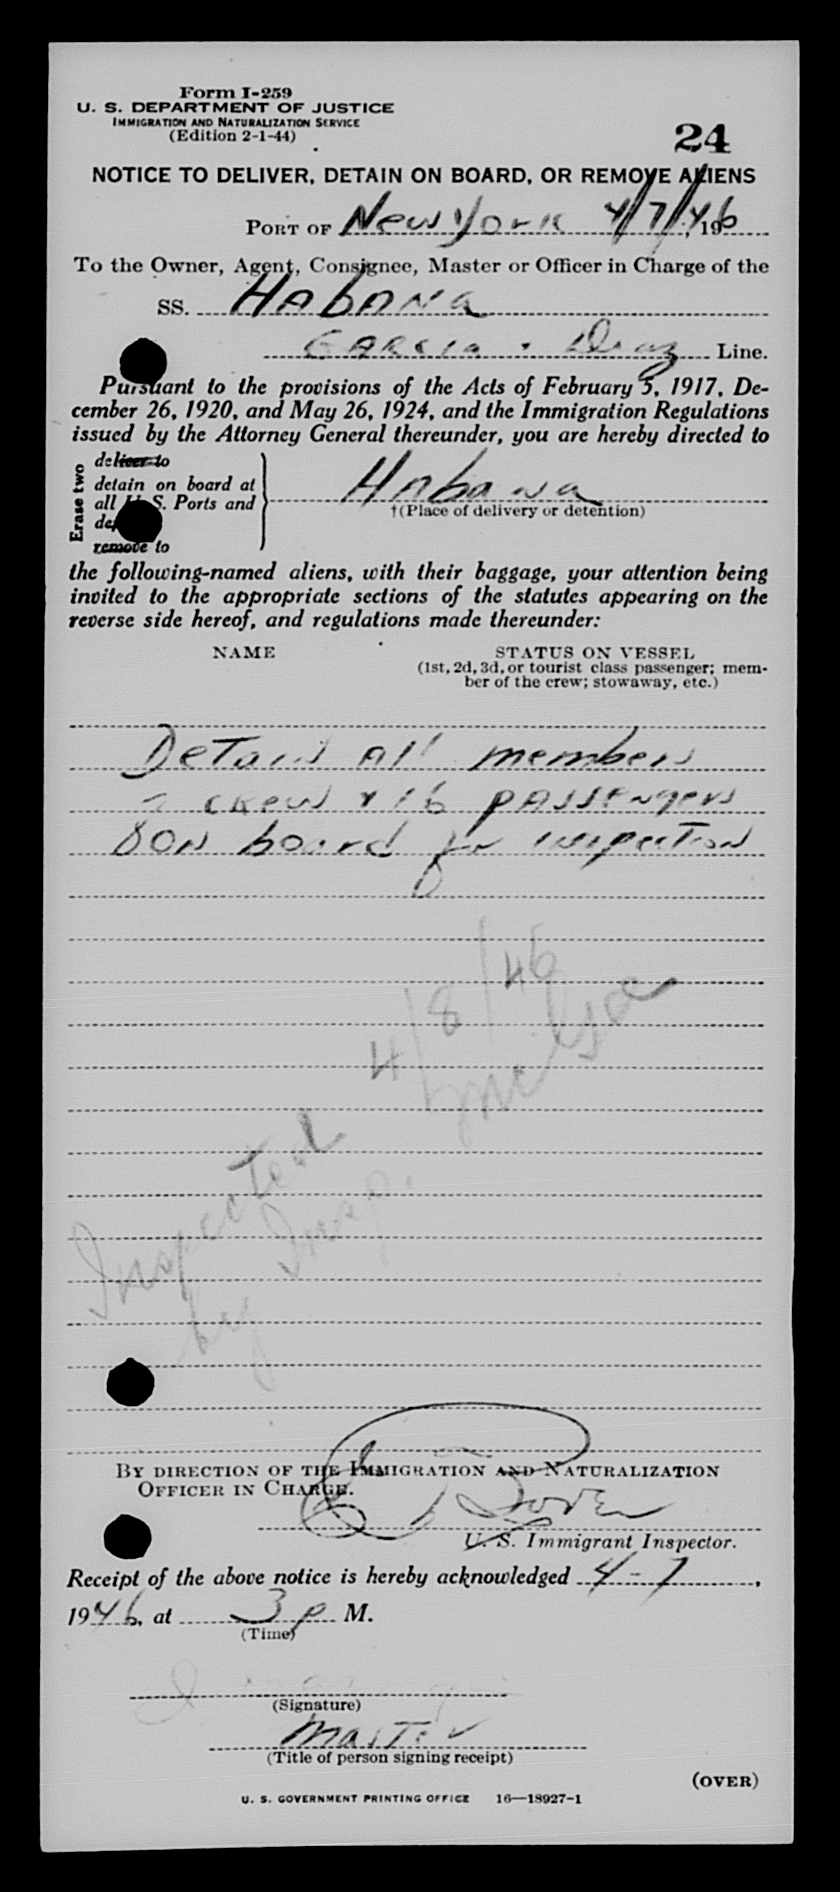 Form I-259
U. S. DEPARTMENT OF JUSTICE
IMMIGRATION AND NATURALIZATION SERVICE
(Edition 2-1-44)
24
NOTICE TO DELIVER, DETAIN ON BOARD, OR REMOVE ALIENS
PORT OF New York 4/7/46, 196
To the Owner, Agent, Consignee, Master or Officer in Charge of the
SS. Habana
Garcia & Diaz Line.
Pursuant to the provisions of the Acts of February 5, 1917, De-
cember 26, 1920, and May 26, 1924, and the Immigration Regulations
issued by the Attorney General thereunder, you are hereby directed to
Erase two
deliver to
detain on board at
all U. S. Ports and
Habana
†(Place of delivery or detention)
remove to
the following-named aliens, with their baggage, your attention being
invited to the appropriate sections of the statutes appearing on the
reverse side hereof, and regulations made thereunder:
NAME
STATUS ON VESSEL
(1st, 2d, 3d, or tourist class passenger; mem-
ber of the crew; stowaway, etc.)
Detain all members
crew & 16 passengers
on board for inspection
4/8/46
Inspected
by Insp.
BY DIRECTION OF THE IMMIGRATION AND NATURALIZATION
OFFICER IN CHARGE.
U. S. Immigrant Inspector.
Receipt of the above notice is hereby acknowledged 4-7,
1946, at 3 P M.
(Time)
(Signature)
Master
(Title of person signing receipt)
(OVER)
U. S. GOVERNMENT PRINTING OFFICE 16—18927-1